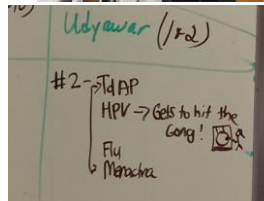 Udyawar (1+2)
#2 - TdAP
HPV → Gets to hit the
Gong!
Flu
Menactra